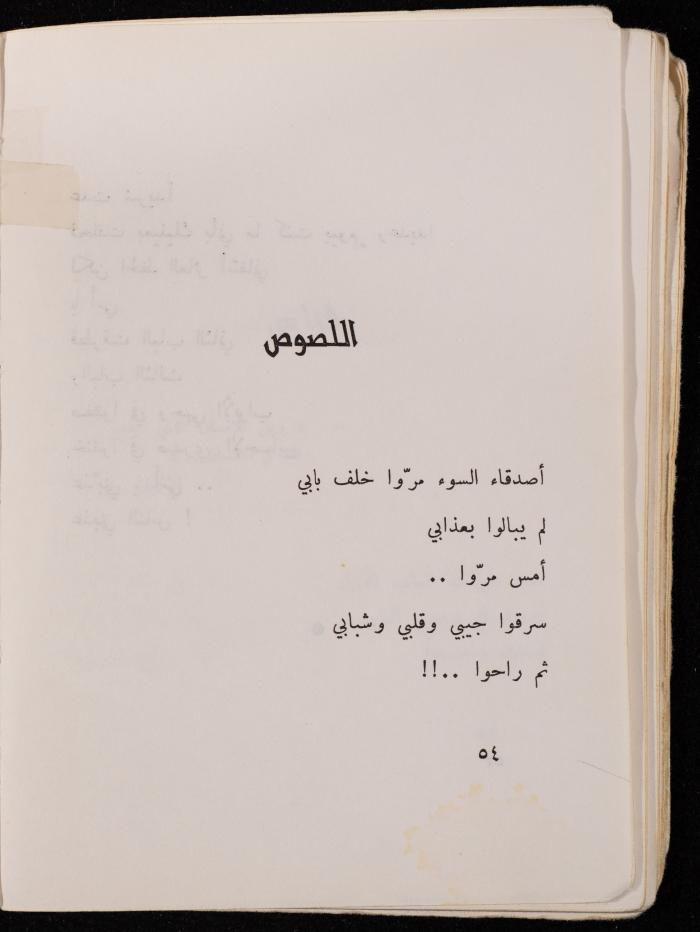 اللصوص
أصدقاء السوء مرّوا خلف بابي
لم يبالوا بعذابي
أمس مرّوا ..
سرقوا جيبي وقلبي وشبابي
ثم راحوا ..!!
٥٤